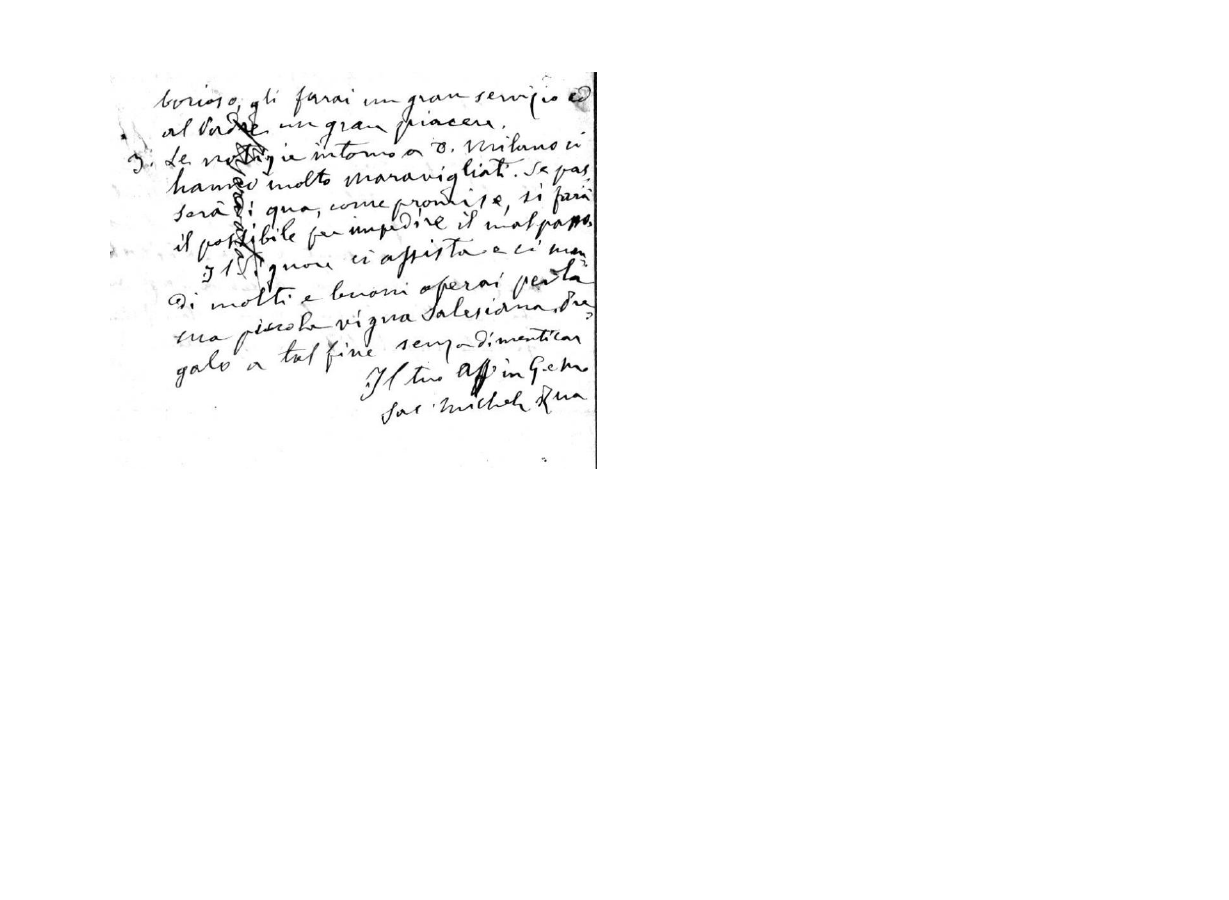 borioso, gli farai un gran servizio ed
al Padre un gran piacere.
3. Le notizie intorno a D. Milano ci
hanno molto maravigliati. Se pas-
serà di qua, come promise, si farà
il possibile per impedire il mal passo
Il Signore ci assista e ci man-
di molti e buoni operai per la
sua piccola vigna Salesiana. Pre-
galo a tal fine senza dimenticar
Il tuo aff in G e M
Sac Michele Rua